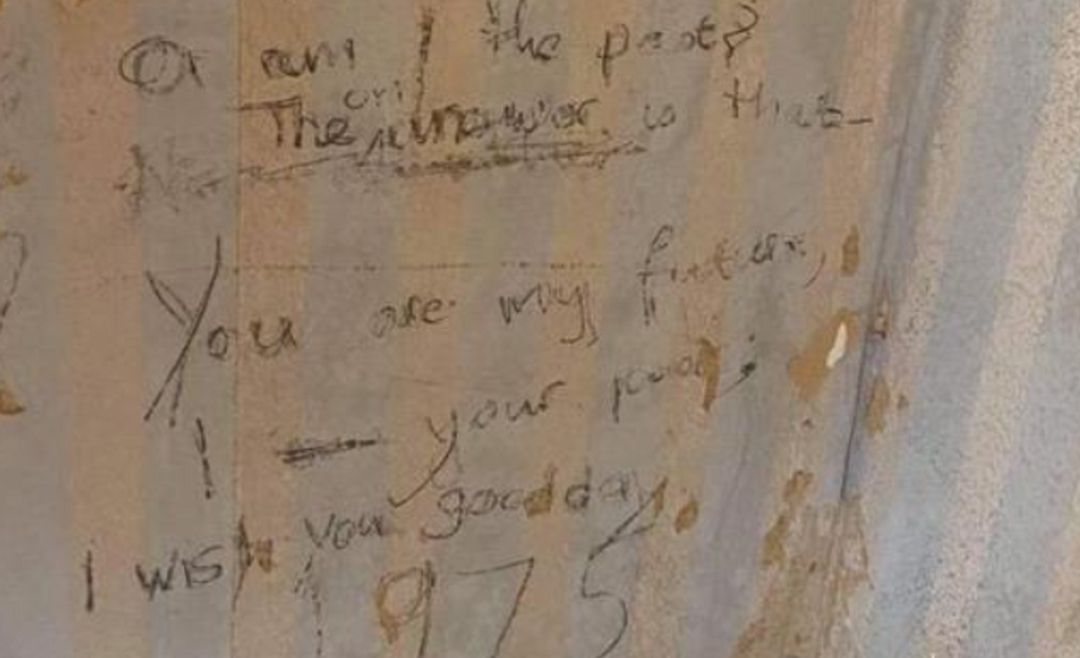 Or am I the past?
The answer is that -
You are my future,
I — your past;
I wish you good day.
1975